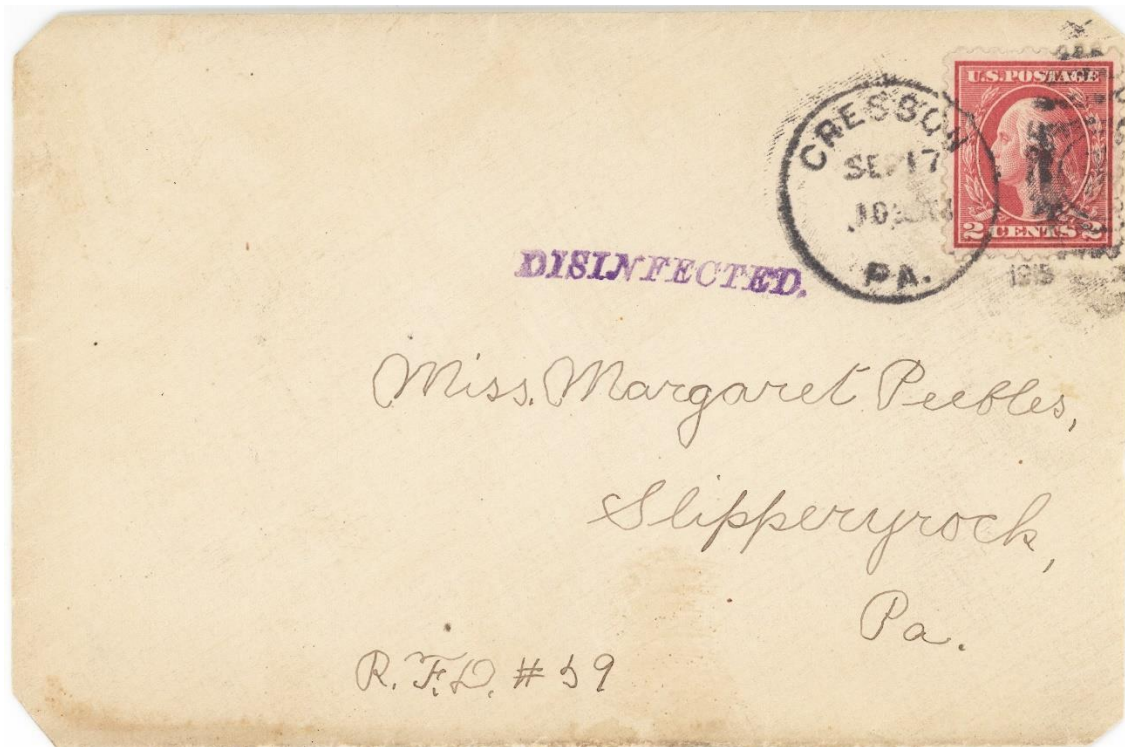 U.S. POSTAGE
2 CENTS 2
CRESSON
SEP 17
PA.
1915
DISINFECTED.
Miss. Margaret Peebles,
Slipperyrock,
Pa.
R.F.D. # 59